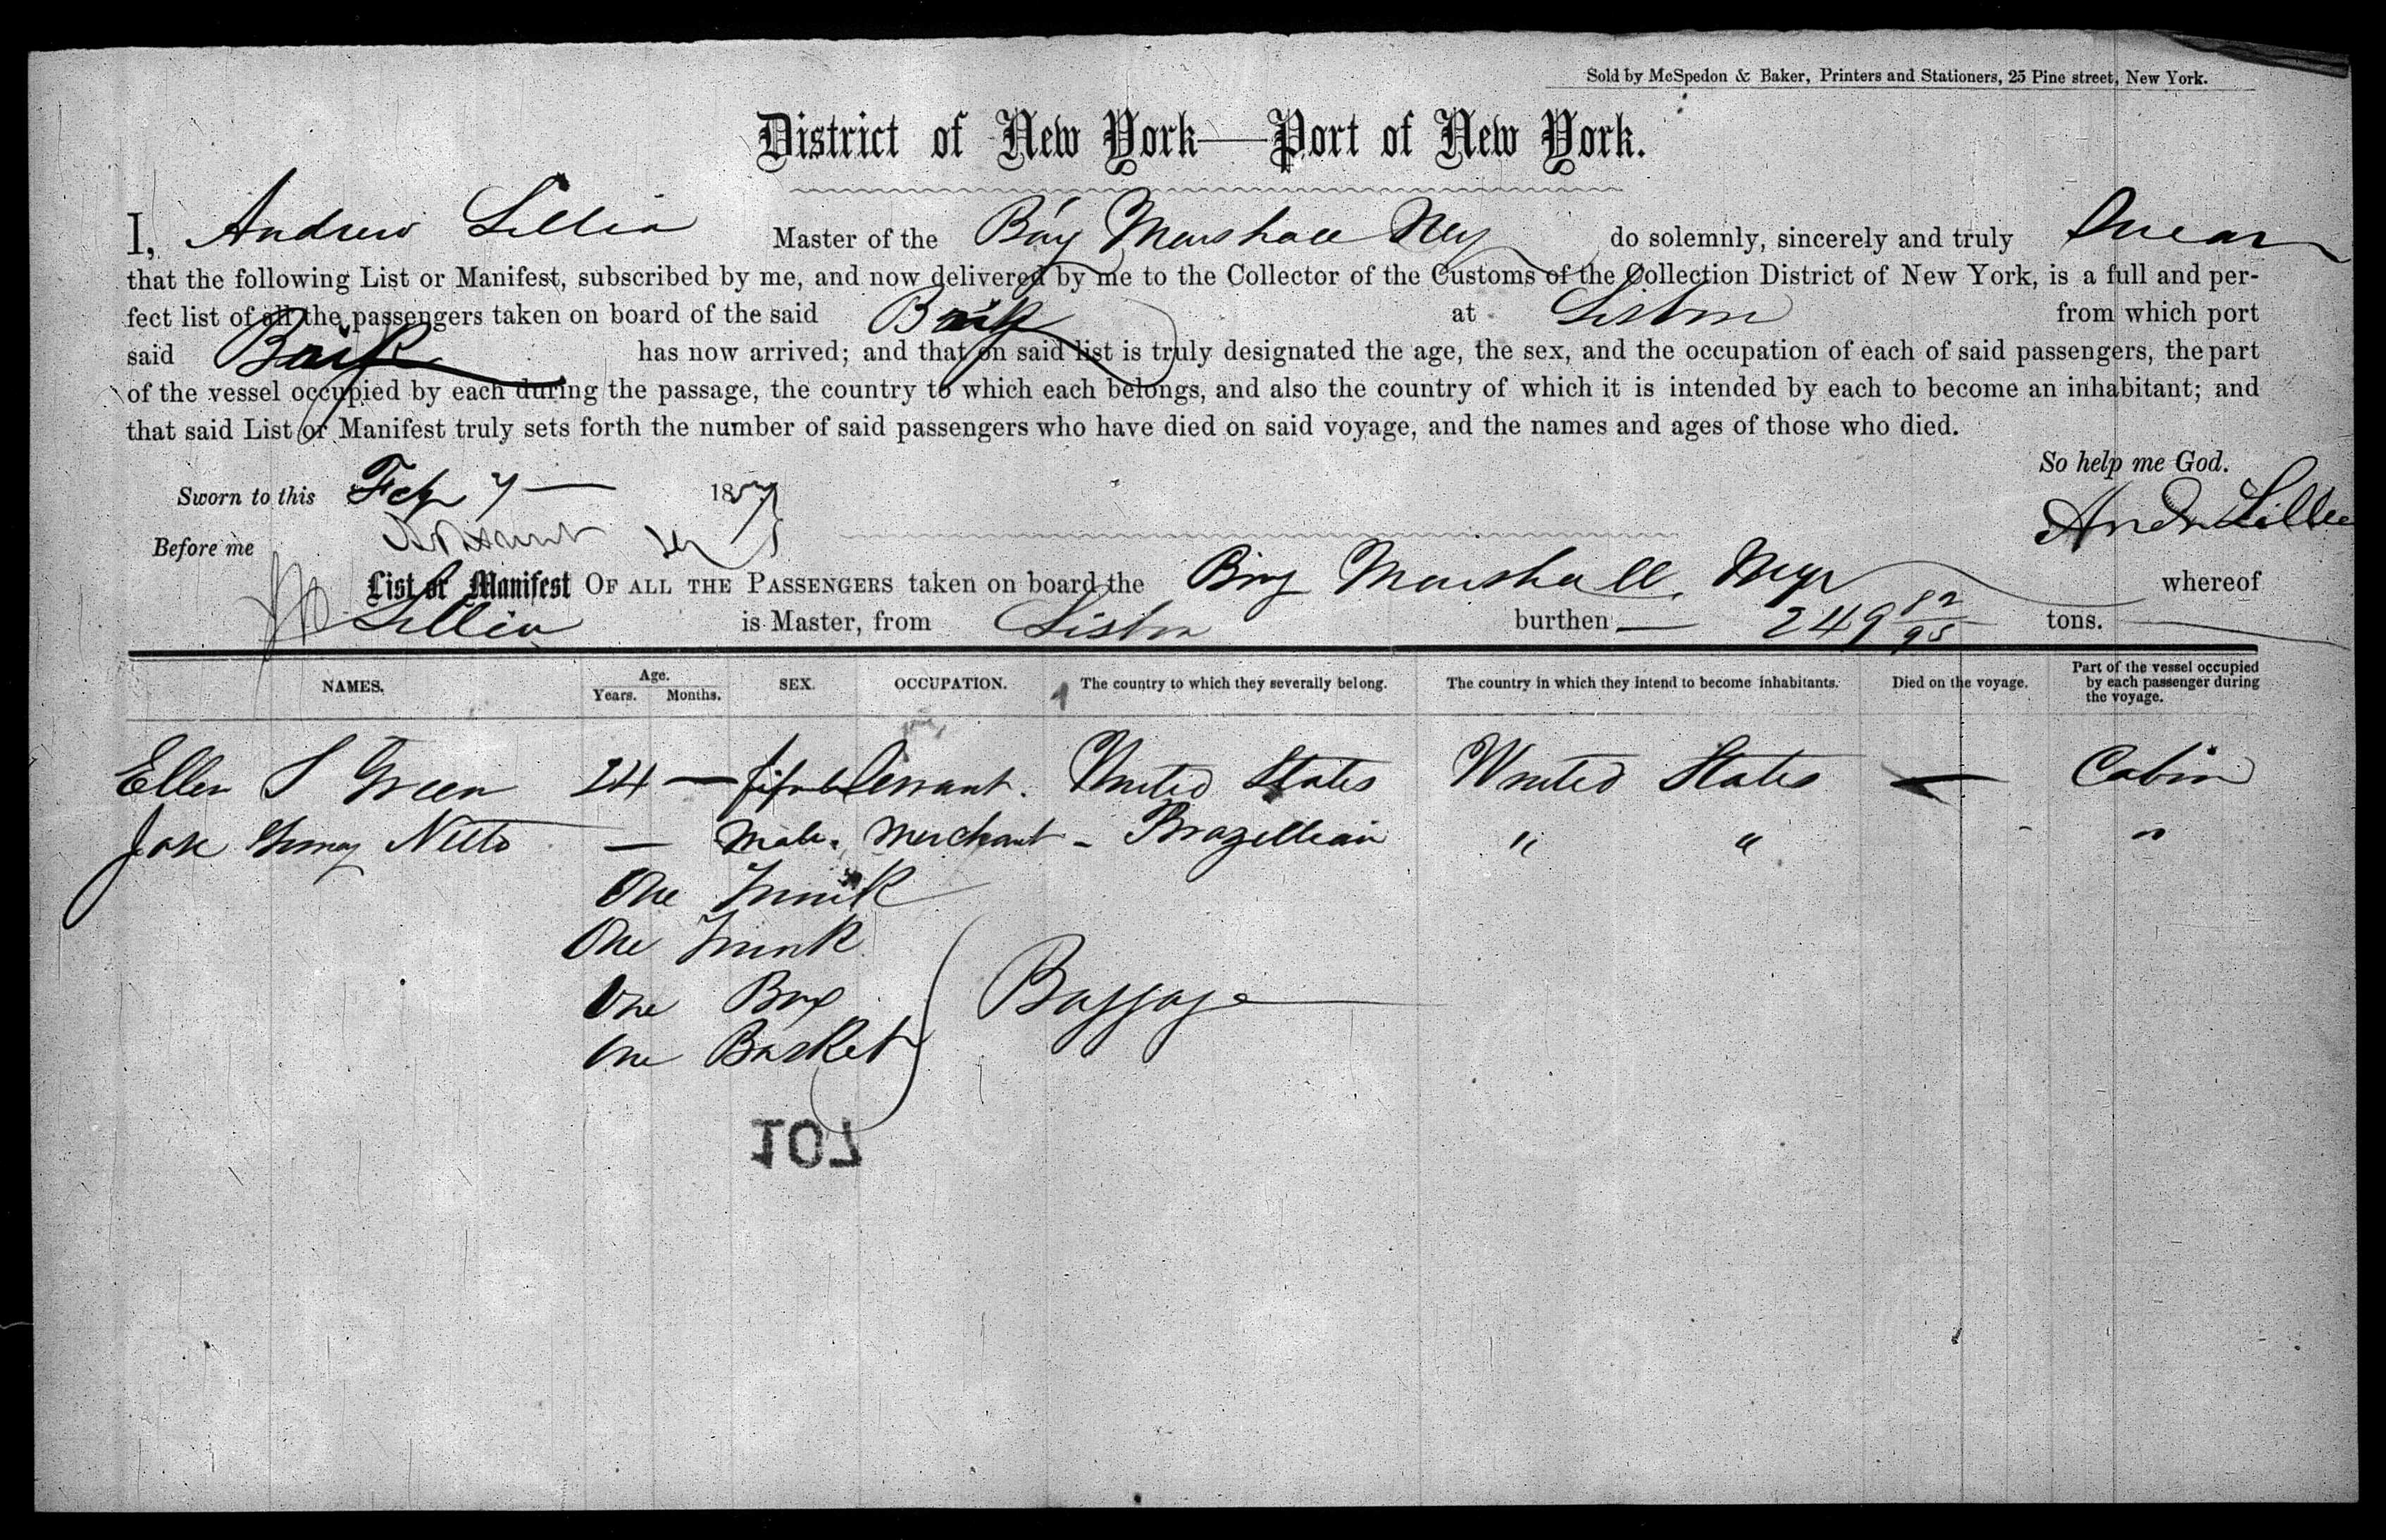 Sold by McSpedon & Baker, Printers and Stationers, 25 Pine street, New York.
District of New York—Port of New York.
I, Andrew Lillia Master of the Brig Marshall Ney do solemnly, sincerely and truly swear
that the following List or Manifest, subscribed by me, and now delivered by me to the Collector of the Customs of the Collection District of New York, is a full and per-
fect list of all the passengers taken on board of the said Brig at Lisbon from which port
said Brig has now arrived; and that on said list is truly designated the age, the sex, and the occupation of each of said passengers, the part
of the vessel occupied by each during the passage, the country to which each belongs, and also the country of which it is intended by each to become an inhabitant; and
that said List or Manifest truly sets forth the number of said passengers who have died on said voyage, and the names and ages of those who died.
So help me God.
Sworn to this Feb 7 — 1857
Andw Lillie
Before me
List or Manifest OF ALL THE PASSENGERS taken on board the Brig Marshall Ney whereof
Lillia is Master, from Lisbon burthen — 249 82/95 tons.
NAMES. Age. Years. Months. SEX. OCCUPATION. The country to which they severally belong. The country in which they intend to become inhabitants. Died on the voyage. Part of the vessel occupied by each passenger during the voyage.
Ellen S Green 24 — Servant. United States United States — Cabin
Jose Netto — Male. Merchant - Brazillian " " - "
One Trunk
One Trunk
One Box Baggage
One Basket
107